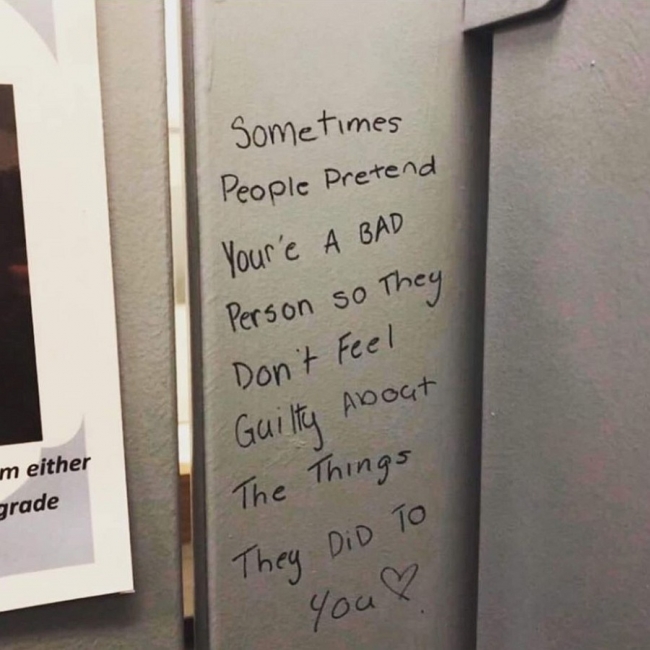 Sometimes
People Pretend
Your'e A BAD
Person so They
Don't Feel
Guilty About
The Things
They DiD To
You♡.
m either
grade